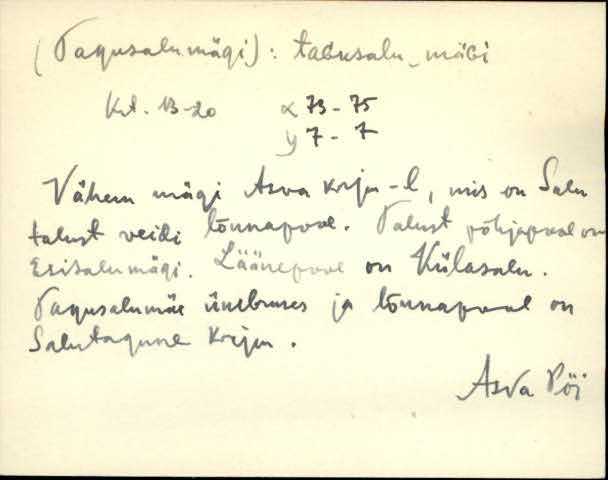 (Tagusalumägi): taGusalu_mäGi
Krt. 13-20 x 73-75
y 7-7
Vähem mägi Asva karju-l, mis on Salu
talust veidi lõunapool. Talust põhjapool on
Esisalumägi. Läänepool on Külasalu.
Tagusalumäe ümbruses ja lõunapool on
Salutagune karju.
Asva Pöi